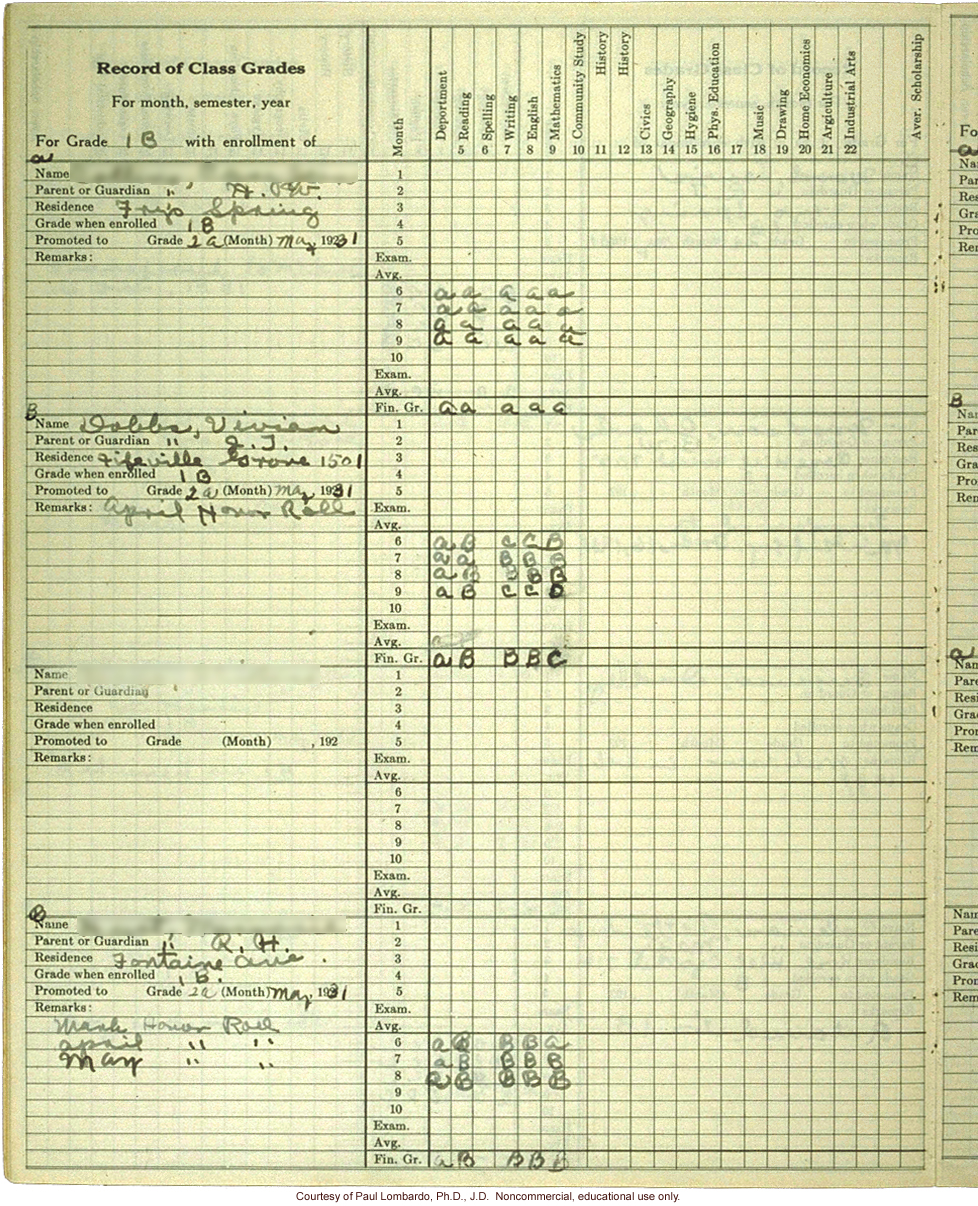 Record of Class Grades
For month, semester, year
For Grade 1 B with enrollment of
Month
Deportment
Reading 5
Spelling 6
Writing 7
English 8
Mathematics 9
Community Study 10
History 11
History 12
Civics 13
Geography 14
Hygiene 15
Phys. Education 16
17
Music 18
Drawing 19
Home Economics 20
Argiculture 21
Industrial Arts 22
Aver. Scholarship
a
Name
Parent or Guardian " H.
Residence Frys Spring
Grade when enrolled 1 B
Promoted to Grade 2a (Month) May 1931
Remarks:
1
2
3
4
5
Exam.
Avg.
6 a a a a a
7 a a a a a
8 a a a a a
9 a a a a a
10
Exam.
Avg.
Fin. Gr. a a a a a
B
Name Dobbs, Vivian
Parent or Guardian " J. T.
Residence Fifeville Grove 1501
Grade when enrolled 1 B
Promoted to Grade 2a (Month) May 1931
Remarks: April Honor Roll
1
2
3
4
5
Exam.
Avg.
6 a B C C B
7 a a B B B
8 a B B B B
9 a B C C D
10
Exam.
Avg.
Fin. Gr. a B B B C
Name
Parent or Guardian
Residence
Grade when enrolled
Promoted to Grade (Month) , 192
Remarks:
1
2
3
4
5
Exam.
Avg.
6
7
8
9
10
Exam.
Avg.
Fin. Gr.
B
Name
Parent or Guardian " R. H.
Residence Fontaine ave.
Grade when enrolled 1 B.
Promoted to Grade 2a (Month) May, 1931
Remarks:
March Honor Roll
april " "
May " "
1
2
3
4
5
Exam.
Avg.
6 a B B B a
7 a B B B B
8 a B B B B
9
10
Exam.
Avg.
Fin. Gr. a B B B B
Courtesy of Paul Lombardo, Ph.D., J.D. Noncommercial, educational use only.